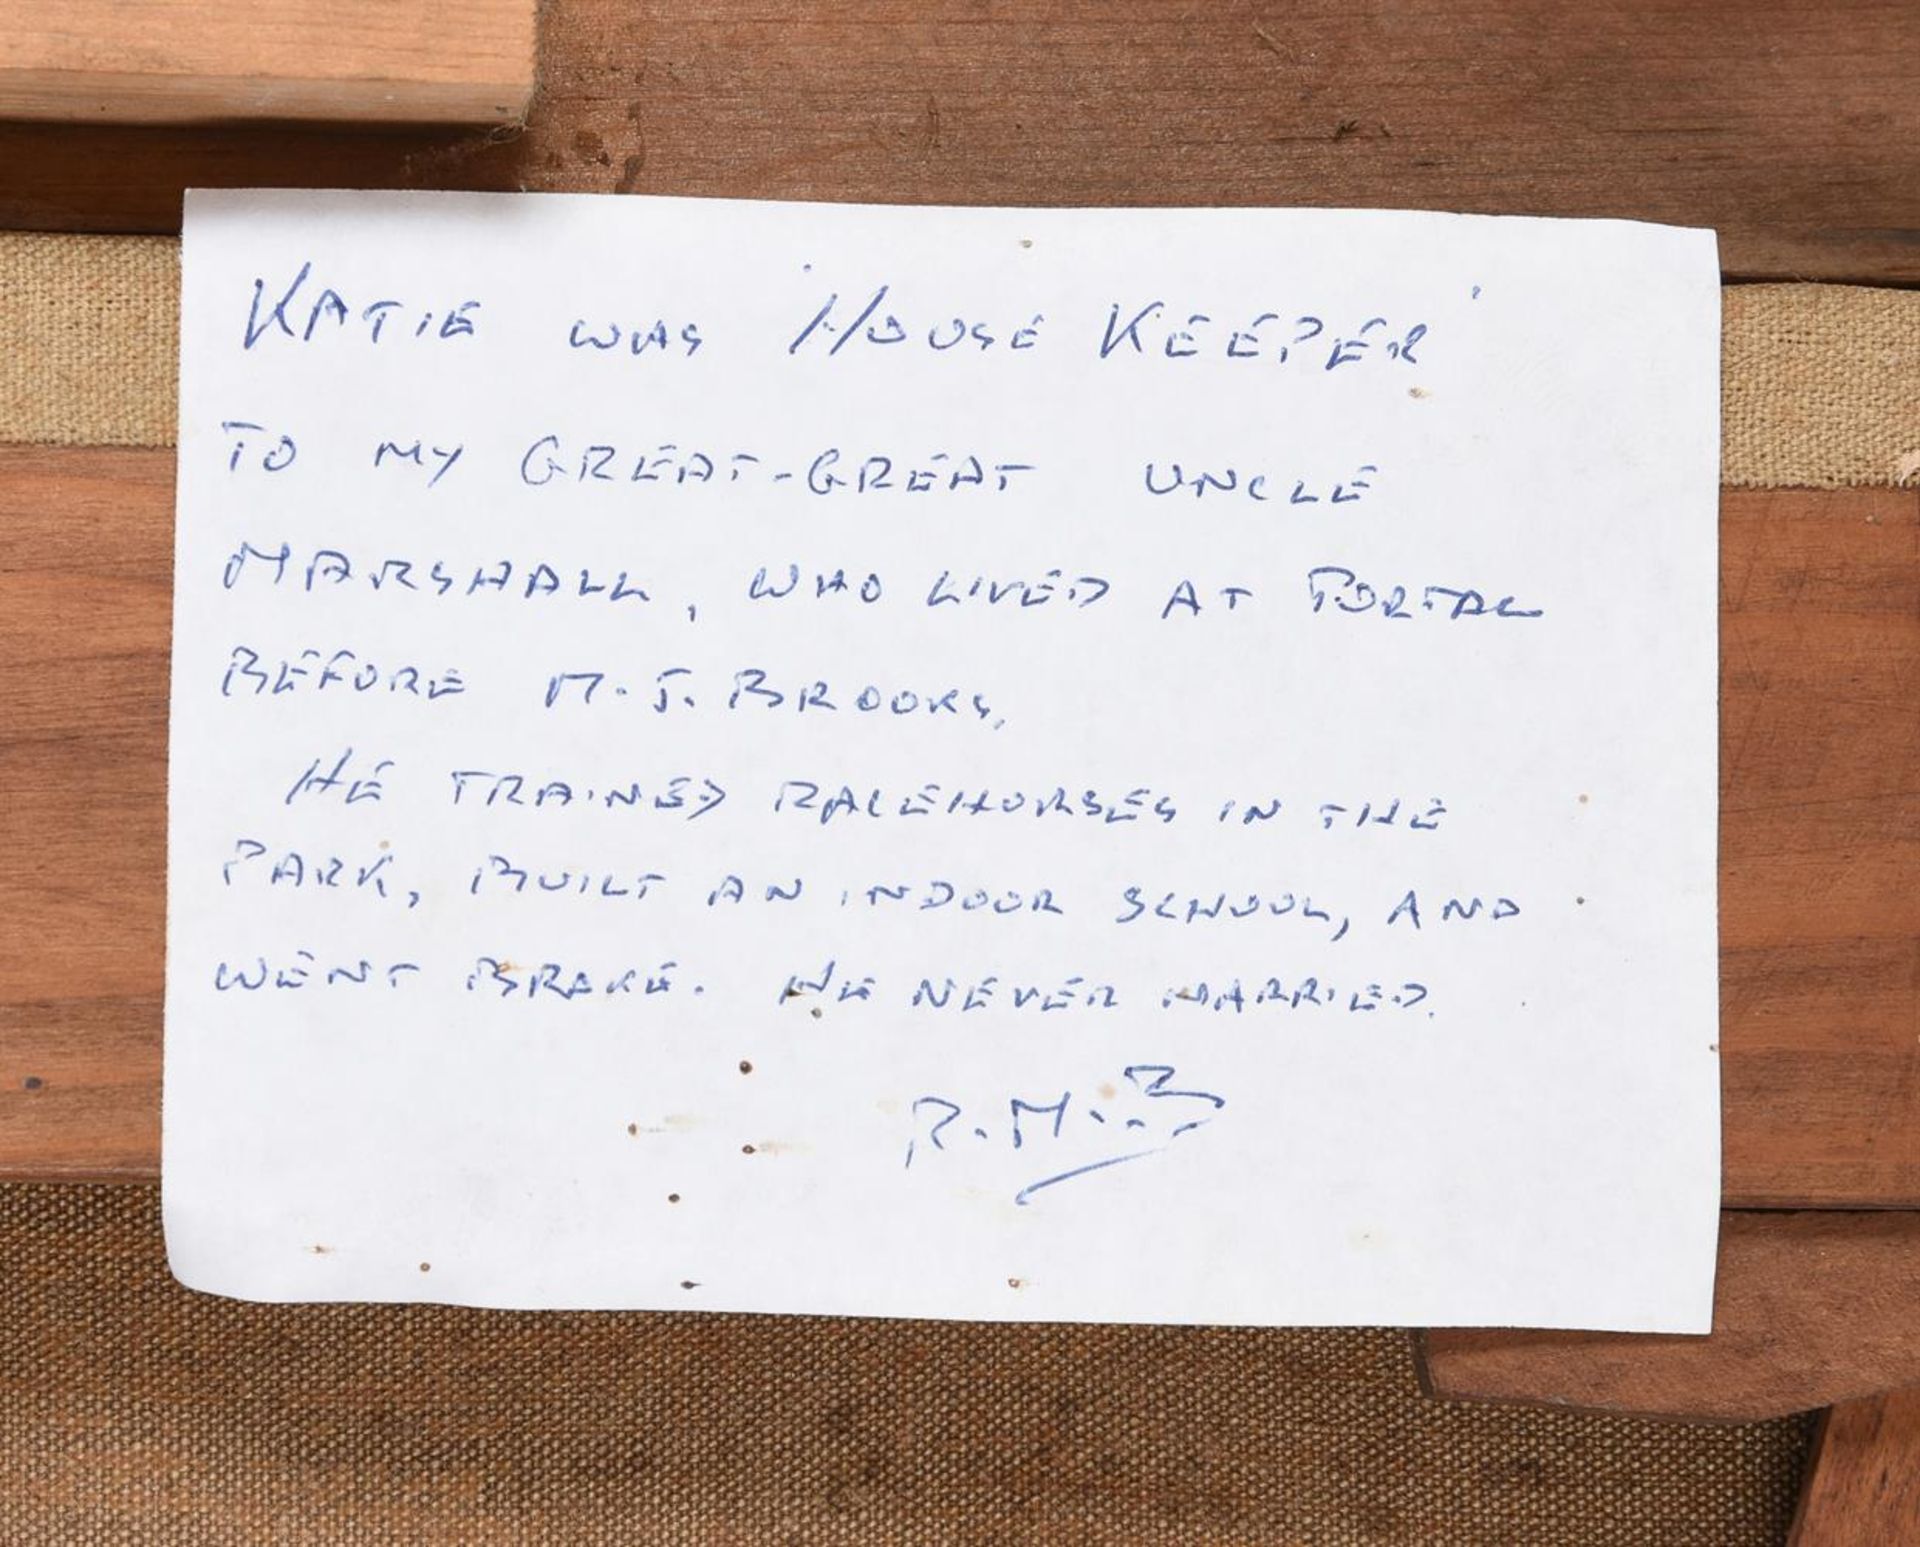 KATIE WAS 'HOUSE KEEPER'
TO MY GREAT-GREAT UNCLE
MARSHALL, WHO LIVED AT PORTAL
BEFORE M. J. BROOKS.
HE TRAINED RACEHORSES IN THE
PARK, BUILT AN INDOOR SCHOOL, AND
WENT BROKE. HE NEVER MARRIED.
R. M. B